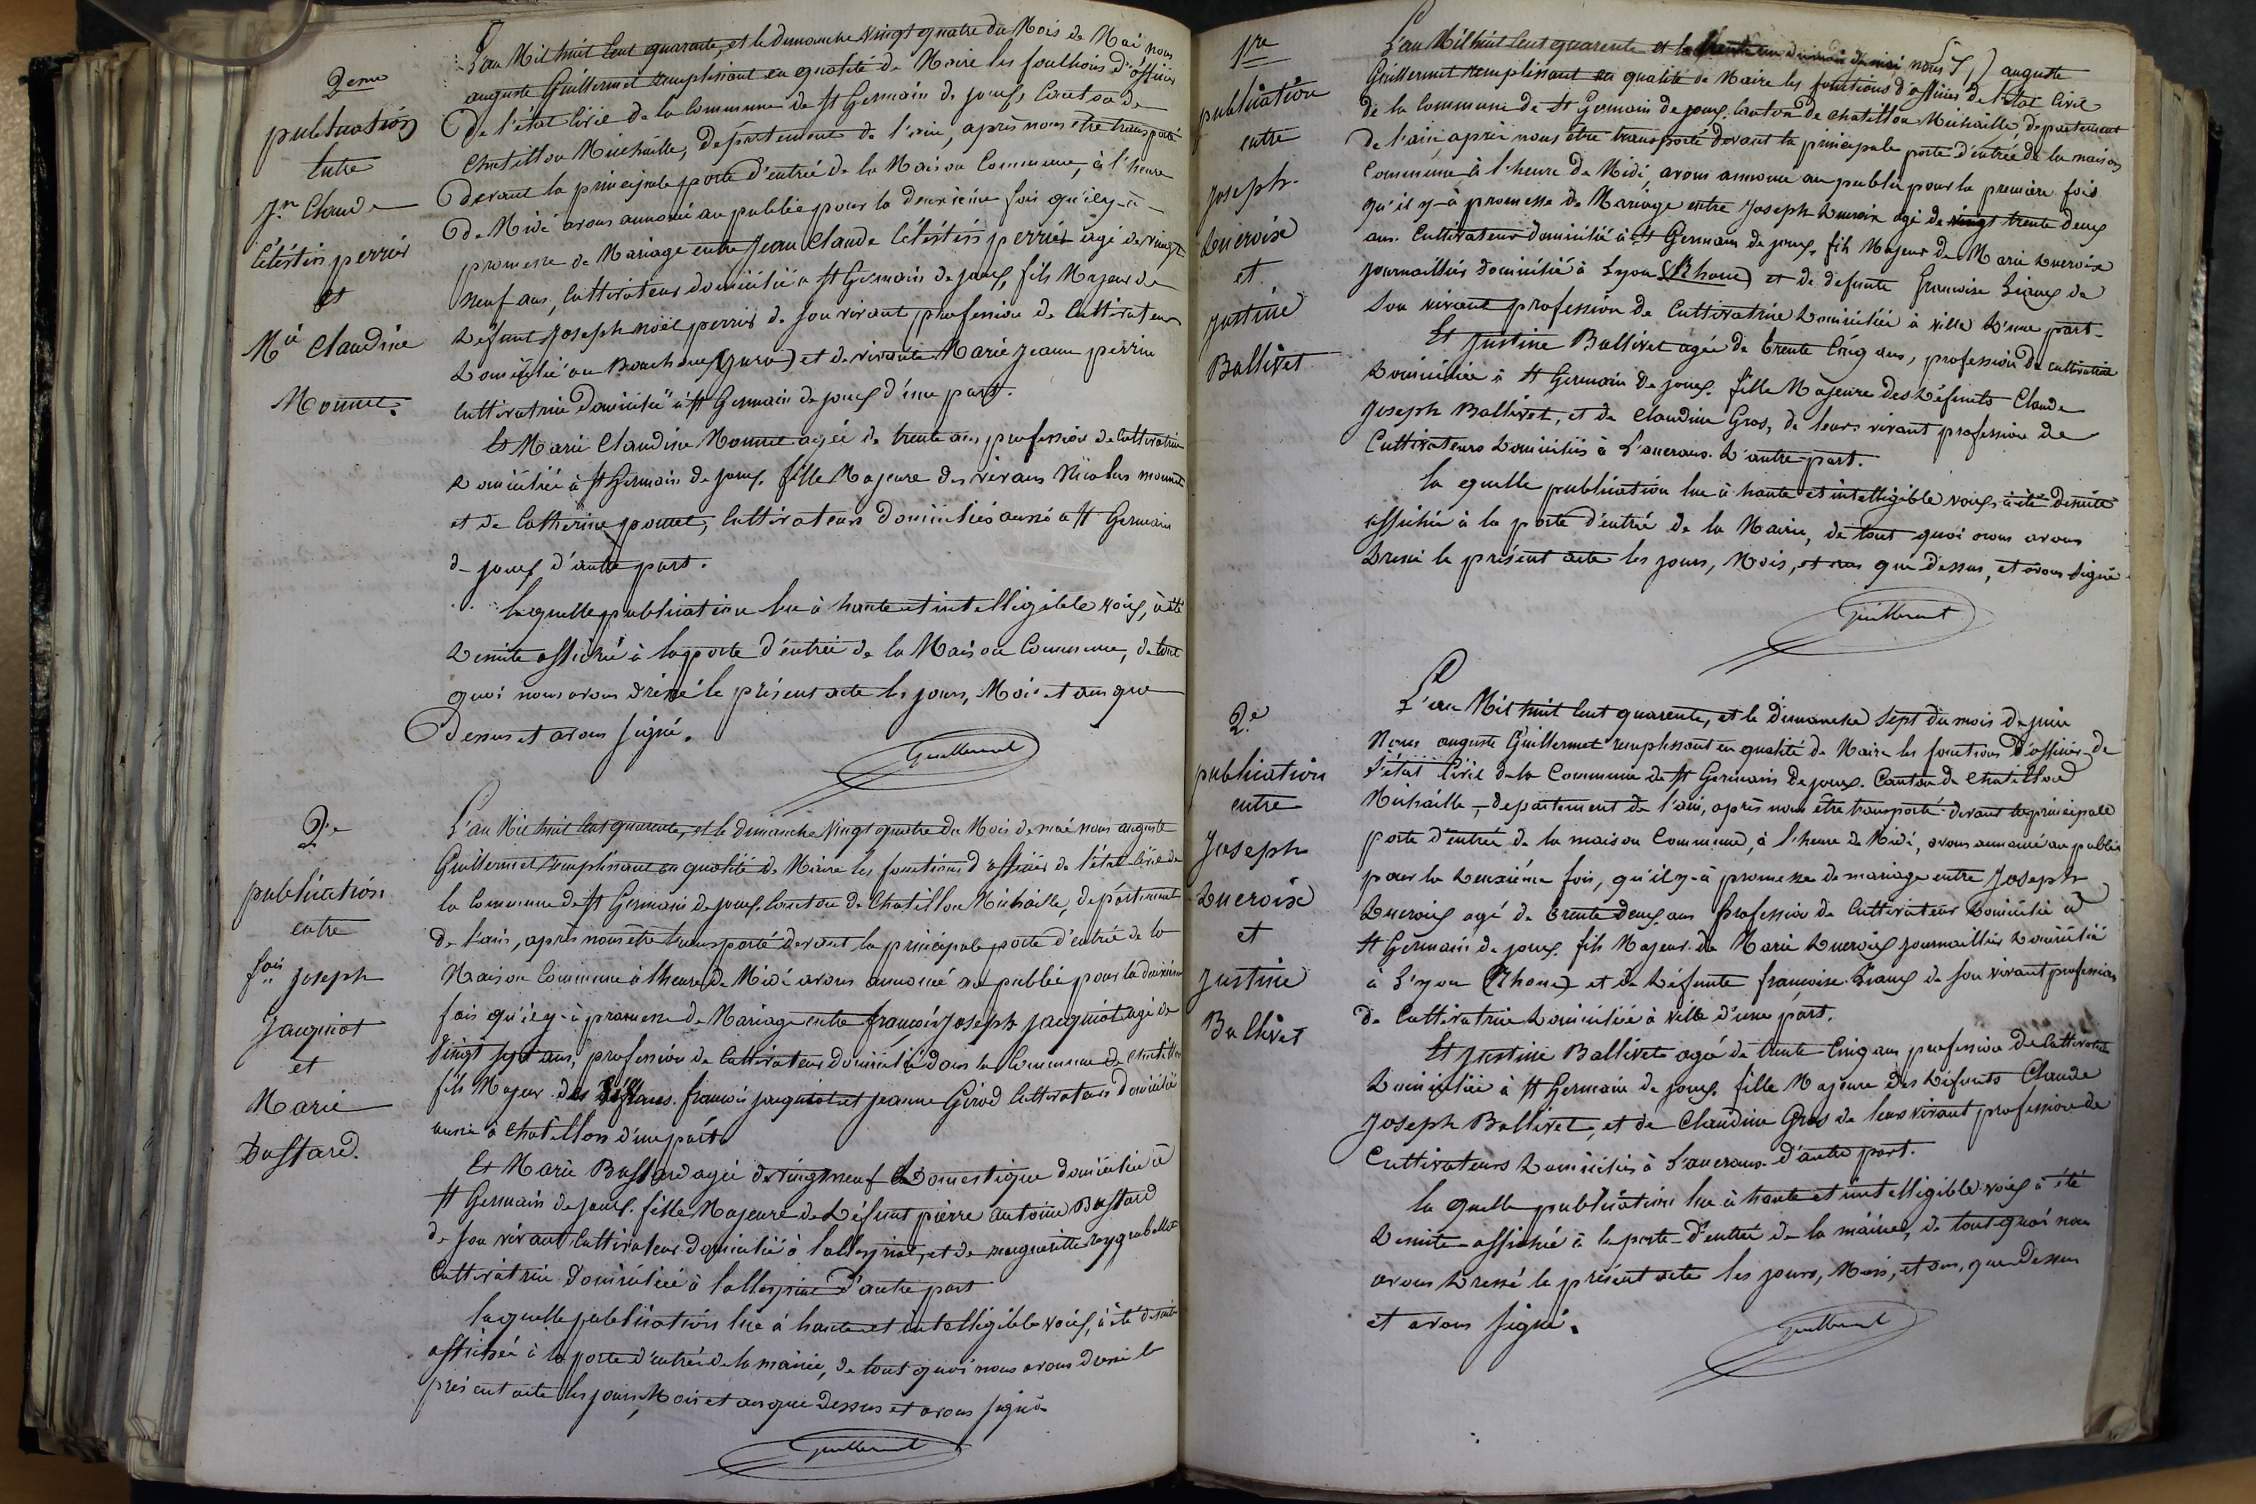 2eme
publication
Entre
Jn Claude
Célèstin perrin
et
Mie Claudine
Monnet.
L'an Mil huit Cent quarante, et le dimanche vingt quatre du Mois de Mai nous
auguste Guillermet remplissant en qualité de Maire les fonctions d'officier
De l'état Civil de la Commune de St Germain de joux, Canton de
Chatillon Michaille, département de l'ain, après nous être transporté
Devant la principale porte d'entrée de la Maison Commune, à l'heure
De Midi avons annoncé au public pour la deuxième fois qu'il y-à
promesse de Mariage entre Jean Claude Célèstin perrin agé de vingt
neuf ans, Cultivateur domicilié a St Germain de joux, fils Majeur de
Défunt Joseph noël perrin de son vivant profession de Cultivateur
Domicilié au Bouchoux (Jura) et de vivante Marie Jeanne perrin
Cultivatrice Domiciliée à St Germain de joux d'une part.
Et Marie Claudine Monnet agée de trente ans profession de Cultivatrice
Domiciliée à St Germain de joux, fille Majeure des vivans Nicolas monnet
et de Catherine ponset, Cultivateurs domiciliés aussi a St Germain
de joux d'autre part.
laquelle publication lue à haute et intelligible voix, à été
Densuite affichée à la porte d'entrée de la Maison Commune, de tout
quoi nous avons dréssé le présent acte les jours, Mois et an que
Dessus et avons signé.
Guillermet
2e
publication
entre
fois Joseph
Jauguiot
et
Marie
Bussard.
L'an Mil huit Cent quarante, et le dimanche vingt quatre du Mois de mai nous auguste
Guillermet remplissant en qualité de Maire les fonctions d'officier de l'état civil de
la Commune de St Germain de joux, Canton de Chatillon Michaille, département
de l'ain, après nous être transporté devant la principale porte d'entrée de la
Maison Commune à l'heure de Midi avons annoncé au public pour la deuxième
fois qu'il y-à promesse de Mariage entre françois Joseph Jauguiot agé de
vingt sept ans, profession de Cultivateur domicilié dans la Commune de Chatillon
fils Majeur des françois jauguiot et jeanne Girod Cultivateurs domiciliés
aussi à Chatillon d'une part.
Et Marie Bussard agée de vingt neuf Domestique domiciliée à
St Germain de joux, fille Majeure de Défunt pierre antoine Bussard
de son vivant Cultivateur domicilié à lalleyriat, et de marguerite
Cultivatrice Domiciliée à lalleyriat d'autre part
laquelle publication lue à haute et intelligible voix, à été densuite
affichée à la porte d'entrée de la mairie, de tout quoi nous avons dressé le
présent acte les jours, Mois et an que Dessus et avons signé
Guillermet
1re
publication
entre
Joseph
Ducroix
et
Justine
Ballivet
L'an Mil huit Cent quarente et le nous auguste
Guillermet remplissant en qualité de Maire les fonctions d'officier de l'état Civil
de la Commune de St Germain de joux, Canton de Chatillon Michaille, departement
de l'ain, après nous être transporté devant la principale porte d'entrée de la maison
Commune à l'heure de Midi, avons annoncé au public pour la première fois
qu'il y-à promesse de Mariage entre Joseph Ducroix agé de vingt trente deux
ans. Cultivateur domicilié à St Germain de joux, fils Majeur de Marie Ducroix
journaillier domicilié à Lyon (Rhone) et de defunte françoise de
son vivant profession de Cultivatrice Domiciliée à ville d'une part.
Et Justine Ballivet agée de trente Cinq ans, profession de cultivatrice
Domiciliée à St Germain de joux, fille Majeure des Défunts Claude
Joseph Ballivet, et de Claudine Gros, de leurs vivant profession de
Cultivateurs Domiciliés à Lancrans. D'autre part.
la quelle publication lue à haute et intelligible voix, à été densuite
affichée à la porte d'entrée de la Mairie, de tout quoi nous avons
Dressé le présent acte les jours, Mois, et an que Dessus, et avons signé
Guillermet
2e
publication
entre
Joseph
Ducroix
et
Justine
Ballivet
L'an Mil huit Cent quarente, et le dimanche sept du mois de juin
Nous auguste Guillermet remplissant en qualité de Maire les fonctions d'officier de
l'état Civil de la Commune de St Germain de joux, Canton de Chatillon
Michaille, departement de l'ain, après nous être transporté devant la principale
porte d'entrée de la maison Commune, à l'heure de Midi, avons annoncé au public
pour la Deuxième fois, qu'il y-à promesse de mariage entre Joseph
Ducroix agé de trente deux ans profession de Cultivateur Domicilié à
St Germain de joux, fils Majeur de Marie Ducroix journaillier Domicilié
à Lyon (Rhone) et de Défunte françoise de son vivant profession
de Cultivatrice Domiciliée à ville d'une part.
Et Justine Ballivet agée de trente Cinq ans profession de Cultivatrice
Domiciliée à St Germain de joux, fille Majeure des Défunts Claude
Joseph Ballivet, et de Claudine Gros de leurs vivant profession de
Cultivateurs Domiciliés à Lancrans d'autre part.
la quelle publication lue à haute et intelligible voix à été
Densuite affichée à la porte d'entrée de la mairie, de tout quoi nous
avons Dressé le présent acte les jours, Mois, et an, que Dessus
et avons signé.
Guillermet